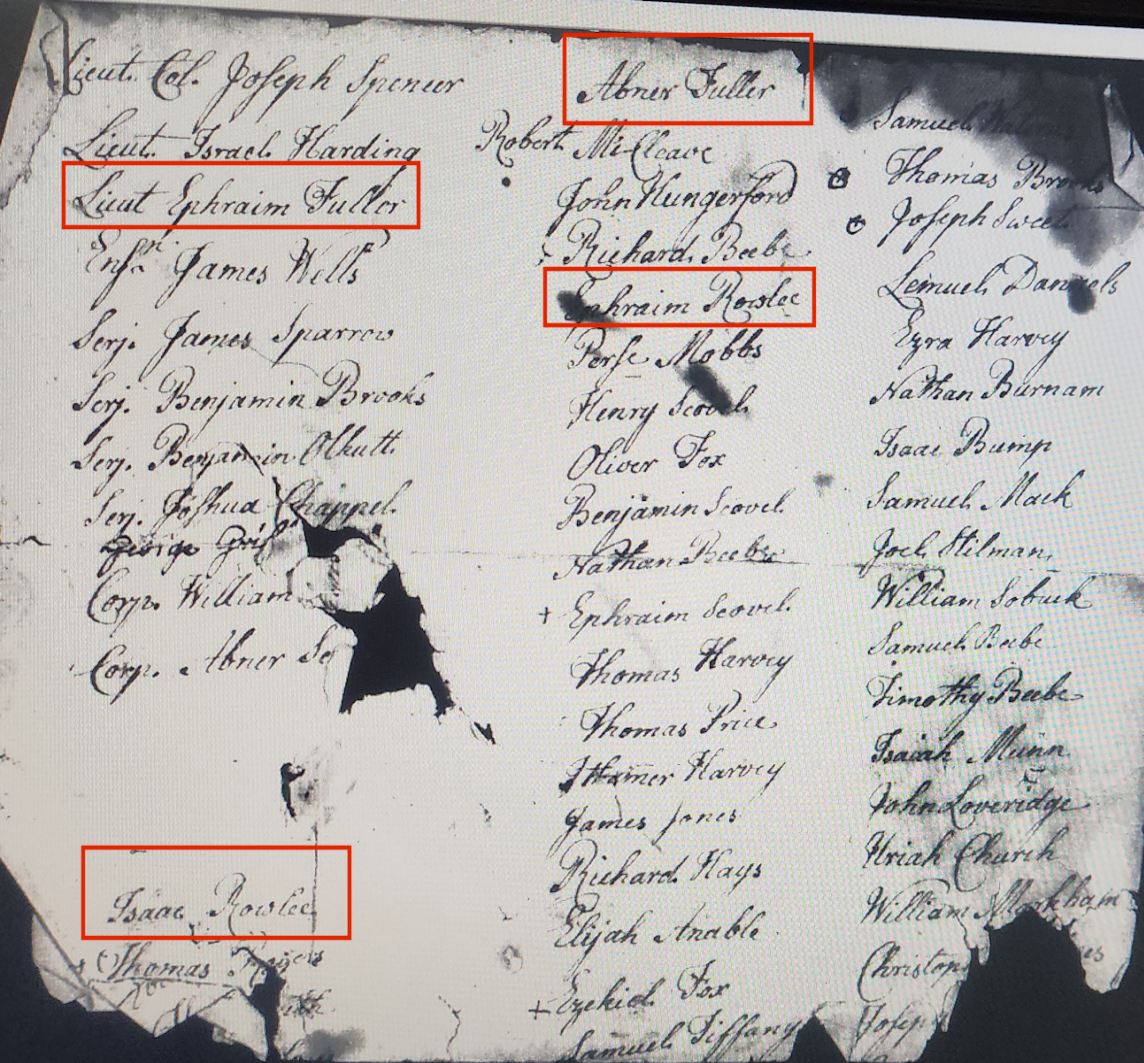 Lieut. Col. Joseph Spencer
Lieut. Israel Harding
Lieut Ephraim Fuller
Ensn. James Wells
Serj. James Sparrow
Serj. Benjamin Brooks
Serj. Benjamin Olkutt
Serj. Joshua Chappel
George
Corp. William
Corp. Abner
Isaac Rowlee
Thomas
Abner Fuller
Robert McCleave
John Hungerford
Richard Beebe
Ephraim Rowlee
Perse Mobbs
Henry Scovel
Oliver Fox
Benjamin Scovel
Nathan Beebe
+ Ephraim Scovel
Thomas Harvey
Thomas Price
Ithamer Harvey
James Jones
Richard Hays
Elijah Anable
+ Ezekiel Fox
Samuel Tiffany
Samuel
Thomas Brooks
Joseph Sweet
Lemuel Daniels
Ezra Harvey
Nathan Burnam
Isaac Bump
Samuel Mack
Joel Stilman
William Sobuck
Samuel Beebe
Timothy Beebe
Isaiah Munn
John Loveridge
Uriah Church
William Markham
Christop
Joseph